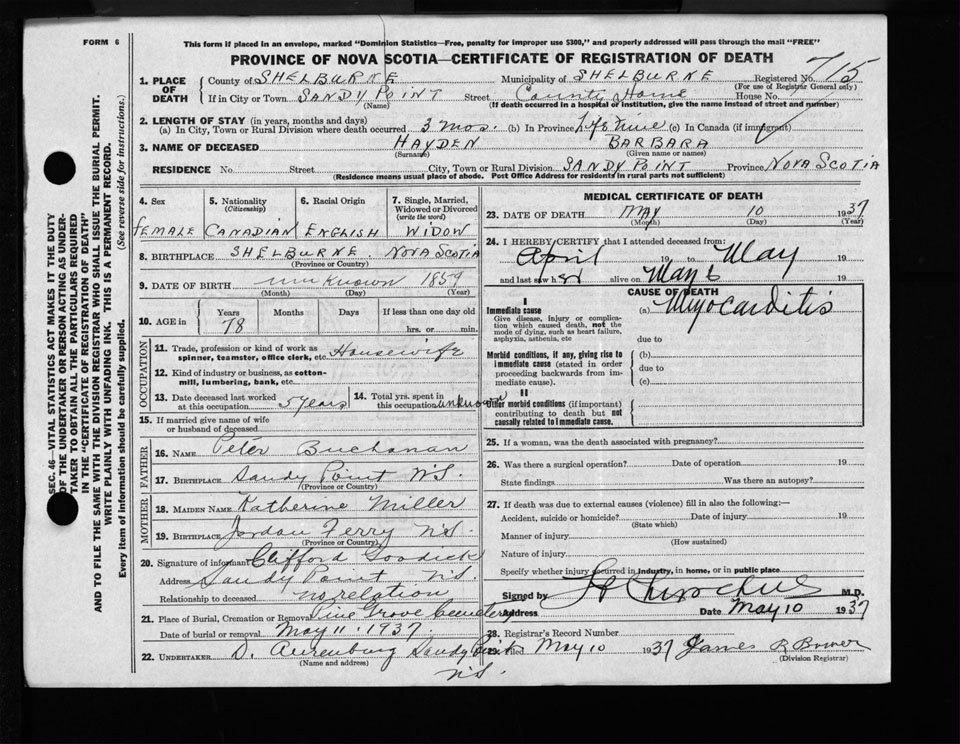 FORM 6
This form if placed in an envelope, marked "Dominion Statistics—Free, penalty for improper use $300," and properly addressed will pass through the mail "FREE"
PROVINCE OF NOVA SCOTIA—CERTIFICATE OF REGISTRATION OF DEATH
715
1. PLACE OF DEATH County of SHELBURNE Municipality of SHELBURNE Registered No.
(For use of Registrar General only)
If in City or Town SANDY POINT Street County Home House No.
(Name) (If death occurred in a hospital or institution, give the name instead of street and number)
2. LENGTH OF STAY (in years, months and days)
(a) In City, Town or Rural Division where death occurred 3 mos. (b) In Province Lifetime (c) In Canada (if immigrant)
3. NAME OF DECEASED HAYDEN BARBARA
(Surname) (Given name or names)
RESIDENCE No. Street City, Town or Rural Division SANDY POINT Province NOVA SCOTIA
(Residence means usual place of abode. Post Office Address for residents in rural parts not sufficient)
4. Sex 5. Nationality (Citizenship) 6. Racial Origin 7. Single, Married, Widowed or Divorced (write the word)
FEMALE CANADIAN ENGLISH WIDOW
8. BIRTHPLACE SHELBURNE. NOVA SCOTIA
(Province or Country)
9. DATE OF BIRTH unknown 1859
(Month) (Day) (Year)
10. AGE in Years Months Days If less than one day old
78 hrs. or min.
OCCUPATION
11. Trade, profession or kind of work as spinner, teamster, office clerk, etc. Housewife
12. Kind of industry or business, as cotton-mill, lumbering, bank, etc.
13. Date deceased last worked at this occupation 5 years 14. Total yrs. spent in this occupation unknown
15. If married give name of wife or husband of deceased
FATHER
16. NAME Peter Buchanan
17. BIRTHPLACE Sandy Point N.S.
(Province or Country)
MOTHER
18. MAIDEN NAME Katherine Miller
19. BIRTHPLACE Jordan Ferry N.S.
(Province or Country)
20. Signature of informant Clifford Goodick
Address Sandy Point N.S.
Relationship to deceased no relation
21. Place of Burial, Cremation or Removal Pine Grove Cemetery
Date of burial or removal May 11. 1937
22. UNDERTAKER D. Sandy Point
(Name and address)
N.S.
MEDICAL CERTIFICATE OF DEATH
23. DATE OF DEATH MAY 10 1937
(Month) (Day) (Year)
24. I HEREBY CERTIFY that I attended deceased from:
April 19 to May 19
and last saw h er alive on May 6 19
CAUSE OF DEATH
I
Immediate cause
Give disease, injury or complication which caused death, not the mode of dying, such as heart failure, asphyxia, asthenia, etc
(a) Myocarditis
due to
Morbid conditions, if any, giving rise to immediate cause (stated in order proceeding backwards from immediate cause).
(b)
due to
(c)
II
Other morbid conditions (if important) contributing to death but not causally related to immediate cause.
25. If a woman, was the death associated with pregnancy?
26. Was there a surgical operation? Date of operation 19
State findings Was there an autopsy?
27. If death was due to external causes (violence) fill in also the following:—
Accident, suicide or homicide? Date of injury 19
(State which)
Manner of injury
(How sustained)
Nature of injury
Specify whether injury occurred in industry, in home, or in public place
Signed by M.D.
Address Date May 10 1937
28. Registrar's Record Number
29. Filed May 10 1937 James R Bower
(Division Registrar)
SEC. 46—VITAL STATISTICS ACT MAKES IT THE DUTY
OF THE UNDERTAKER OR PERSON ACTING AS UNDER-
TAKER TO OBTAIN ALL THE PARTICULARS REQUIRED
IN THE "CERTIFICATE OF REGISTRATION OF DEATH"
AND TO FILE THE SAME WITH THE DIVISION REGISTRAR WHO SHALL ISSUE THE BURIAL PERMIT.
WRITE PLAINLY WITH UNFADING INK. THIS IS A PERMANENT RECORD.
Every item of information should be carefully supplied. (See reverse side for instructions.)